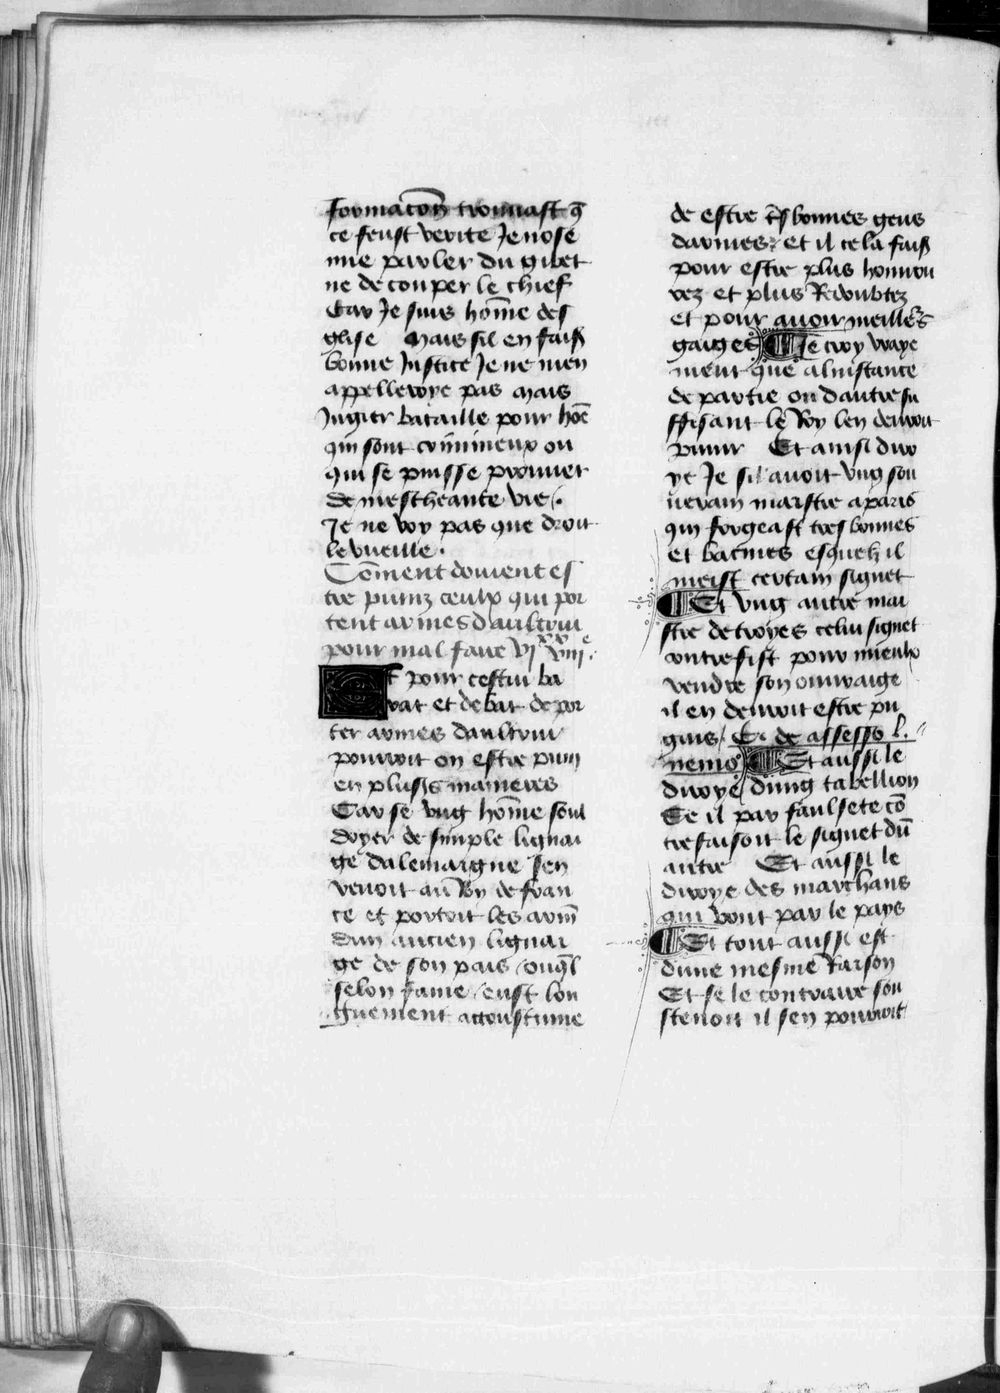 formacon trouuast q̄
ce feust verite Je nose
mie parler du gibet
ne de couper le chief
Car Je suis home des
glise Mais sil en faiss
bonne Justice Je ne men
appelleroye pas Mais
Jugier bataille pour hoē
qui sont crimineux ou
qui se puisse prouuer
de mescheante vie.
Je ne voy pas que droit
le vueille.
Coment doiuent es
tre puniz ceulx qui por
tent armes daultrui
pour mal faire
Et pour cestui ba
rat et debat de por
ter armes daultrui
pourroit on estre puni
en plusrs manieres
Car se vng home soul
doyer de simple lignai
ge dalemaigne sen
venoit au Roy de fran
ce et portoit les arm̄
dun ancien lignai
ge de son pais ouq̄l
selon fame eust lon
guement accoustume
de estre trs bonnes gens
darmes et il cela faiss
pour estre plus honnou
rez et plus Redoubtez
et pour auoir meillrs
gaiges Je croy vraye
ment que a linstance
de partie ou dautre su
ffisant le Roy len deuroit
punir Et ainsi diro
ye Je sil auoit vng sou
uerain maistre a paris
qui forgeast tres bonnes
et bacines esquelz il
meist certain signet
Et vng autre mai
stre de troyes celui signet
contrefist pour mieulx
vendre son ouuraige
il en deuroit estre pu
gnis. C. de assesso l.
nemo Et aussi le
diroye dung tabellion
Se il par faulsete cō
trefaisoit le signet dū
autre Et aussi le
diroye des marchans
qui vont par le pays
Et tout aussi est
dune mesme Raison
Et se le contraire sou
stenoit il sen pourroit